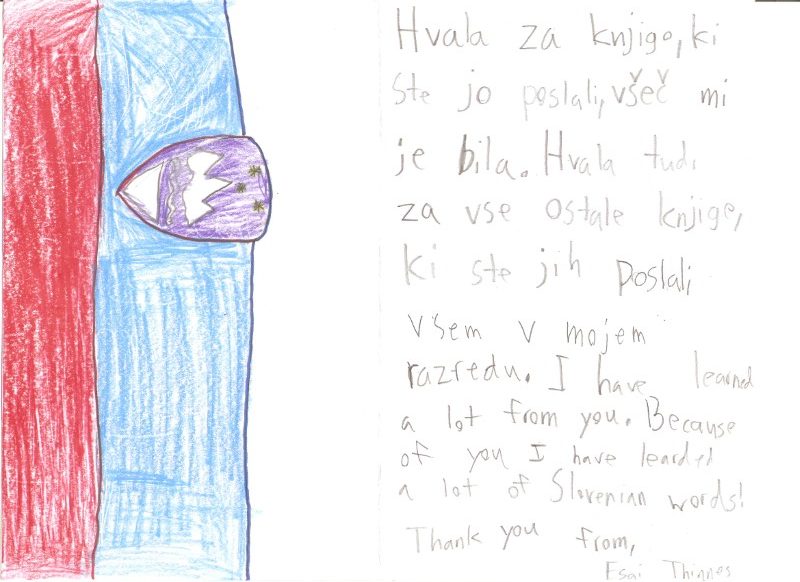 Hvala za knjigo, ki
ste jo poslali, všeč mi
je bila. Hvala tudi
za vse ostale knjige,
ki ste jih poslali
všem v mojem
razredu. I have learned
a lot from you. Because
of you I have learded
a lot of Slovenian words!
Thank you from,
Esai Thinnes